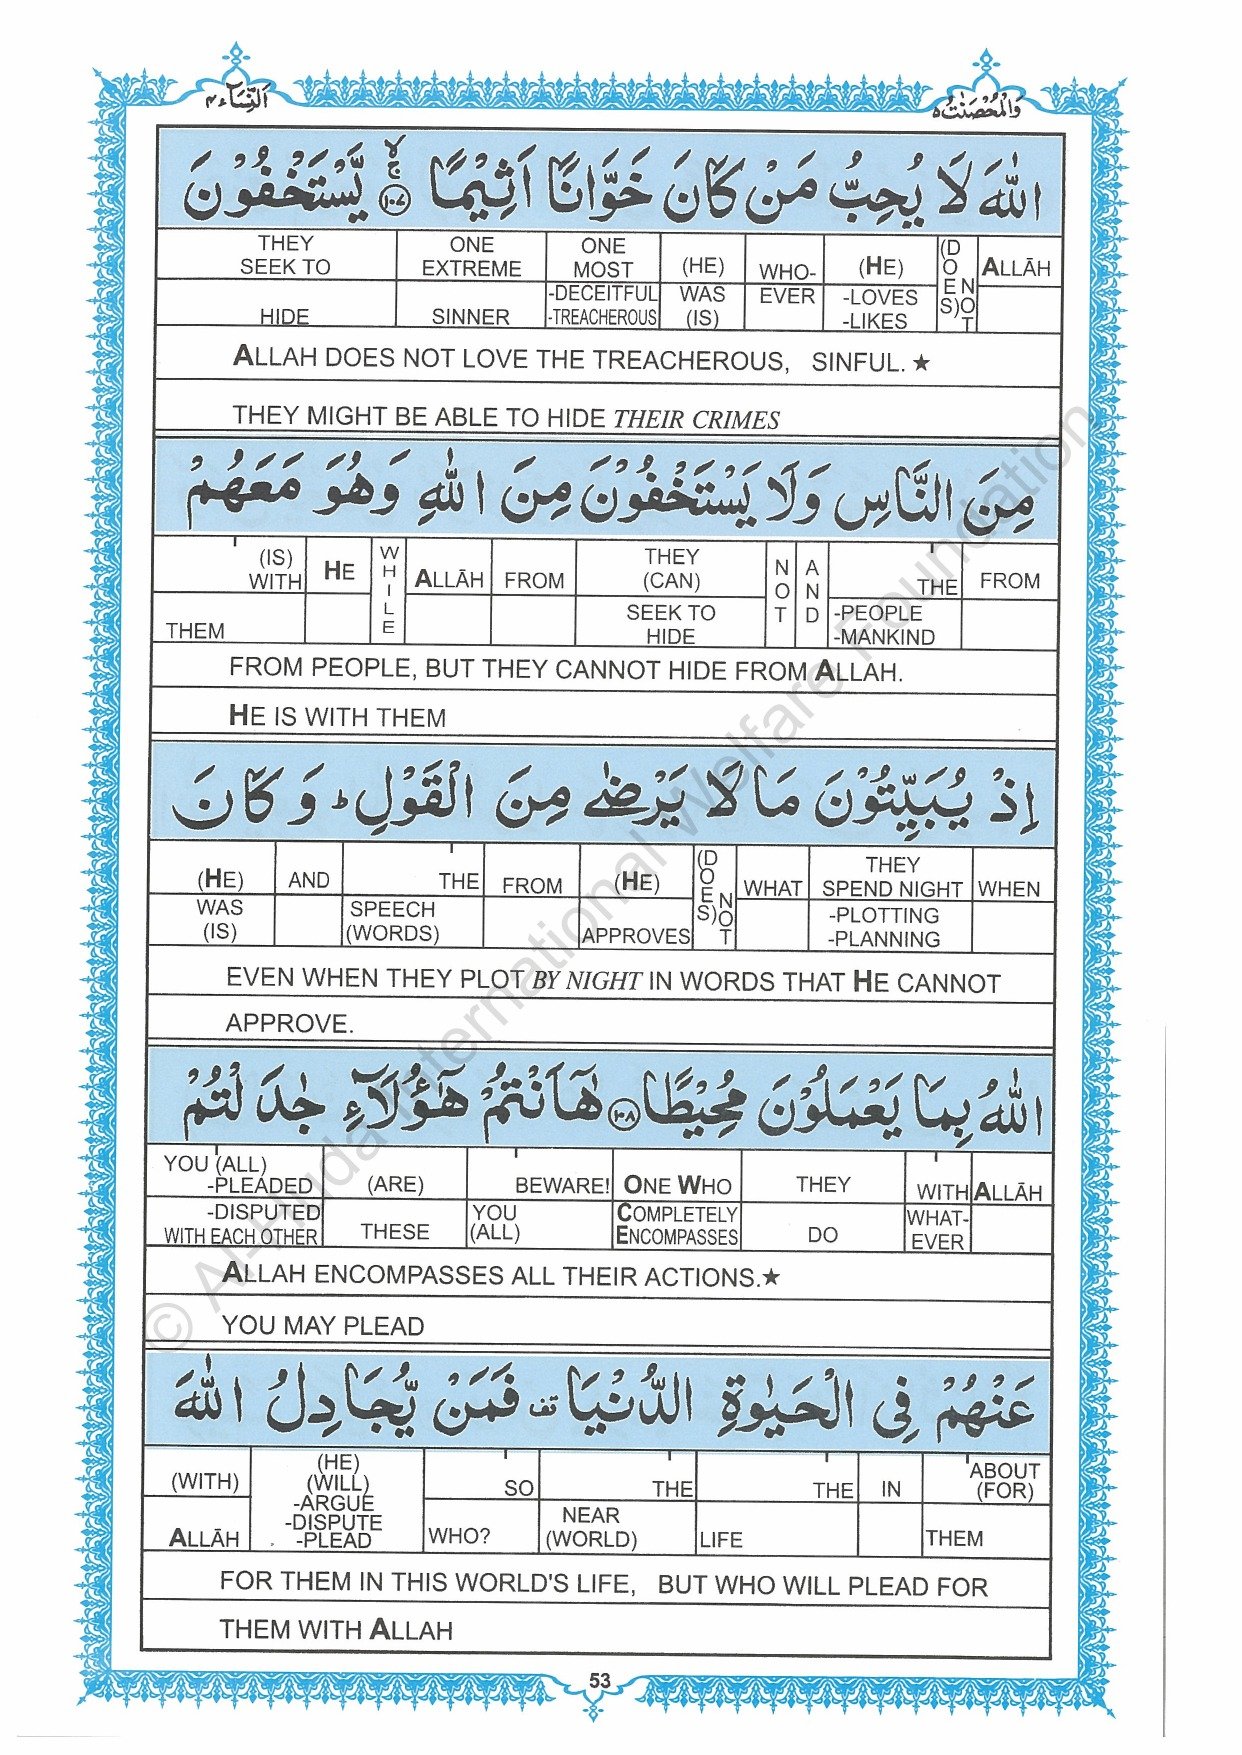 اَلنِّسَآء ٤
وَالْمُحْصَنٰتُ ٥
اللّٰهَ لَا يُحِبُّ مَنْ كَانَ خَوَّانًا اَثِيْمًا ۙۚ ﴿١٠٧﴾ يَّسْتَخْفُوْنَ
THEY SEEK TO HIDE
ONE EXTREME SINNER
ONE MOST -DECEITFUL -TREACHEROUS
(HE) WAS (IS)
WHO-EVER
(HE) -LOVES -LIKES
(DOES) NOT
ALLĀH
ALLAH DOES NOT LOVE THE TREACHEROUS, SINFUL.★
THEY MIGHT BE ABLE TO HIDE THEIR CRIMES
مِنَ النَّاسِ وَلَا يَسْتَخْفُوْنَ مِنَ اللّٰهِ وَهُوَ مَعَهُمْ
(IS) WITH THEM
HE
WHILE
ALLĀH
FROM
THEY (CAN) SEEK TO HIDE
NOT
AND
THE -PEOPLE -MANKIND
FROM
FROM PEOPLE, BUT THEY CANNOT HIDE FROM ALLAH.
HE IS WITH THEM
اِذْ يُبَيِّتُوْنَ مَا لَا يَرْضٰى مِنَ الْقَوْلِ ؕ وَ كَانَ
(HE) WAS (IS)
AND
THE SPEECH (WORDS)
FROM
(HE) APPROVES
(DOES) NOT
WHAT
THEY SPEND NIGHT -PLOTTING -PLANNING
WHEN
EVEN WHEN THEY PLOT BY NIGHT IN WORDS THAT HE CANNOT
APPROVE.
اللّٰهُ بِمَا يَعْمَلُوْنَ مُحِيْطًا ﴿١٠٨﴾ هٰٓاَنْتُمْ هٰٓؤُلَآءِ جٰدَلْتُمْ
YOU (ALL) -PLEADED -DISPUTED WITH EACH OTHER
(ARE) THESE
BEWARE! YOU (ALL)
ONE WHO COMPLETELY ENCOMPASSES
THEY DO
WITH WHAT-EVER
ALLĀH
ALLAH ENCOMPASSES ALL THEIR ACTIONS.★
YOU MAY PLEAD
عَنْهُمْ فِى الْحَيٰوةِ الدُّنْيَا قف فَمَنْ يُّجَادِلُ اللّٰهَ
(WITH) ALLĀH
(HE) (WILL) -ARGUE -DISPUTE -PLEAD
SO WHO?
THE NEAR (WORLD)
THE LIFE
IN
ABOUT (FOR) THEM
FOR THEM IN THIS WORLD'S LIFE, BUT WHO WILL PLEAD FOR
THEM WITH ALLAH
53
© Al-Huda International Welfare Foundation